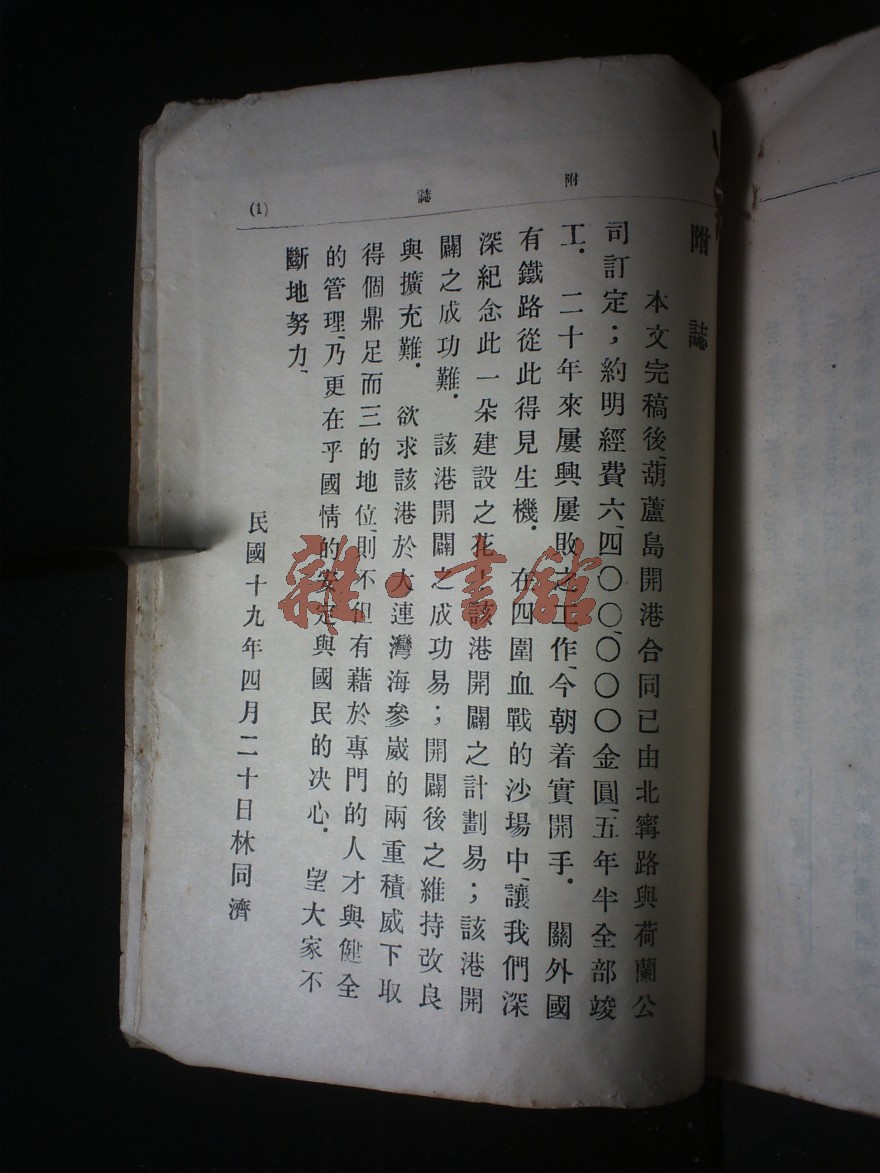 附誌
(1)
附誌
本文完稿後、葫蘆島開港合同已由北寗路與荷蘭公
司訂定；約明經費六、四〇〇、〇〇〇金圓、五年半全部竣
工．二十年來屢興屢敗之工作、今朝着實開手．關外國
有鐵路從此得見生機．在四圍血戰的沙場中、讓我們深
深紀念此一朵建設之花！該港開闢之計劃易；該港開
闢之成功難．該港開闢之成功易；開闢後之維持改良
與擴充難．欲求該港於大連灣海參崴的兩重積威下取
得個鼎足而三的地位、則不但有藉於專門的人才與健全
的管理、乃更在乎國情的安定與國民的决心．望大家不
斷地努力、
民國十九年四月二十日林同濟
雜·書館